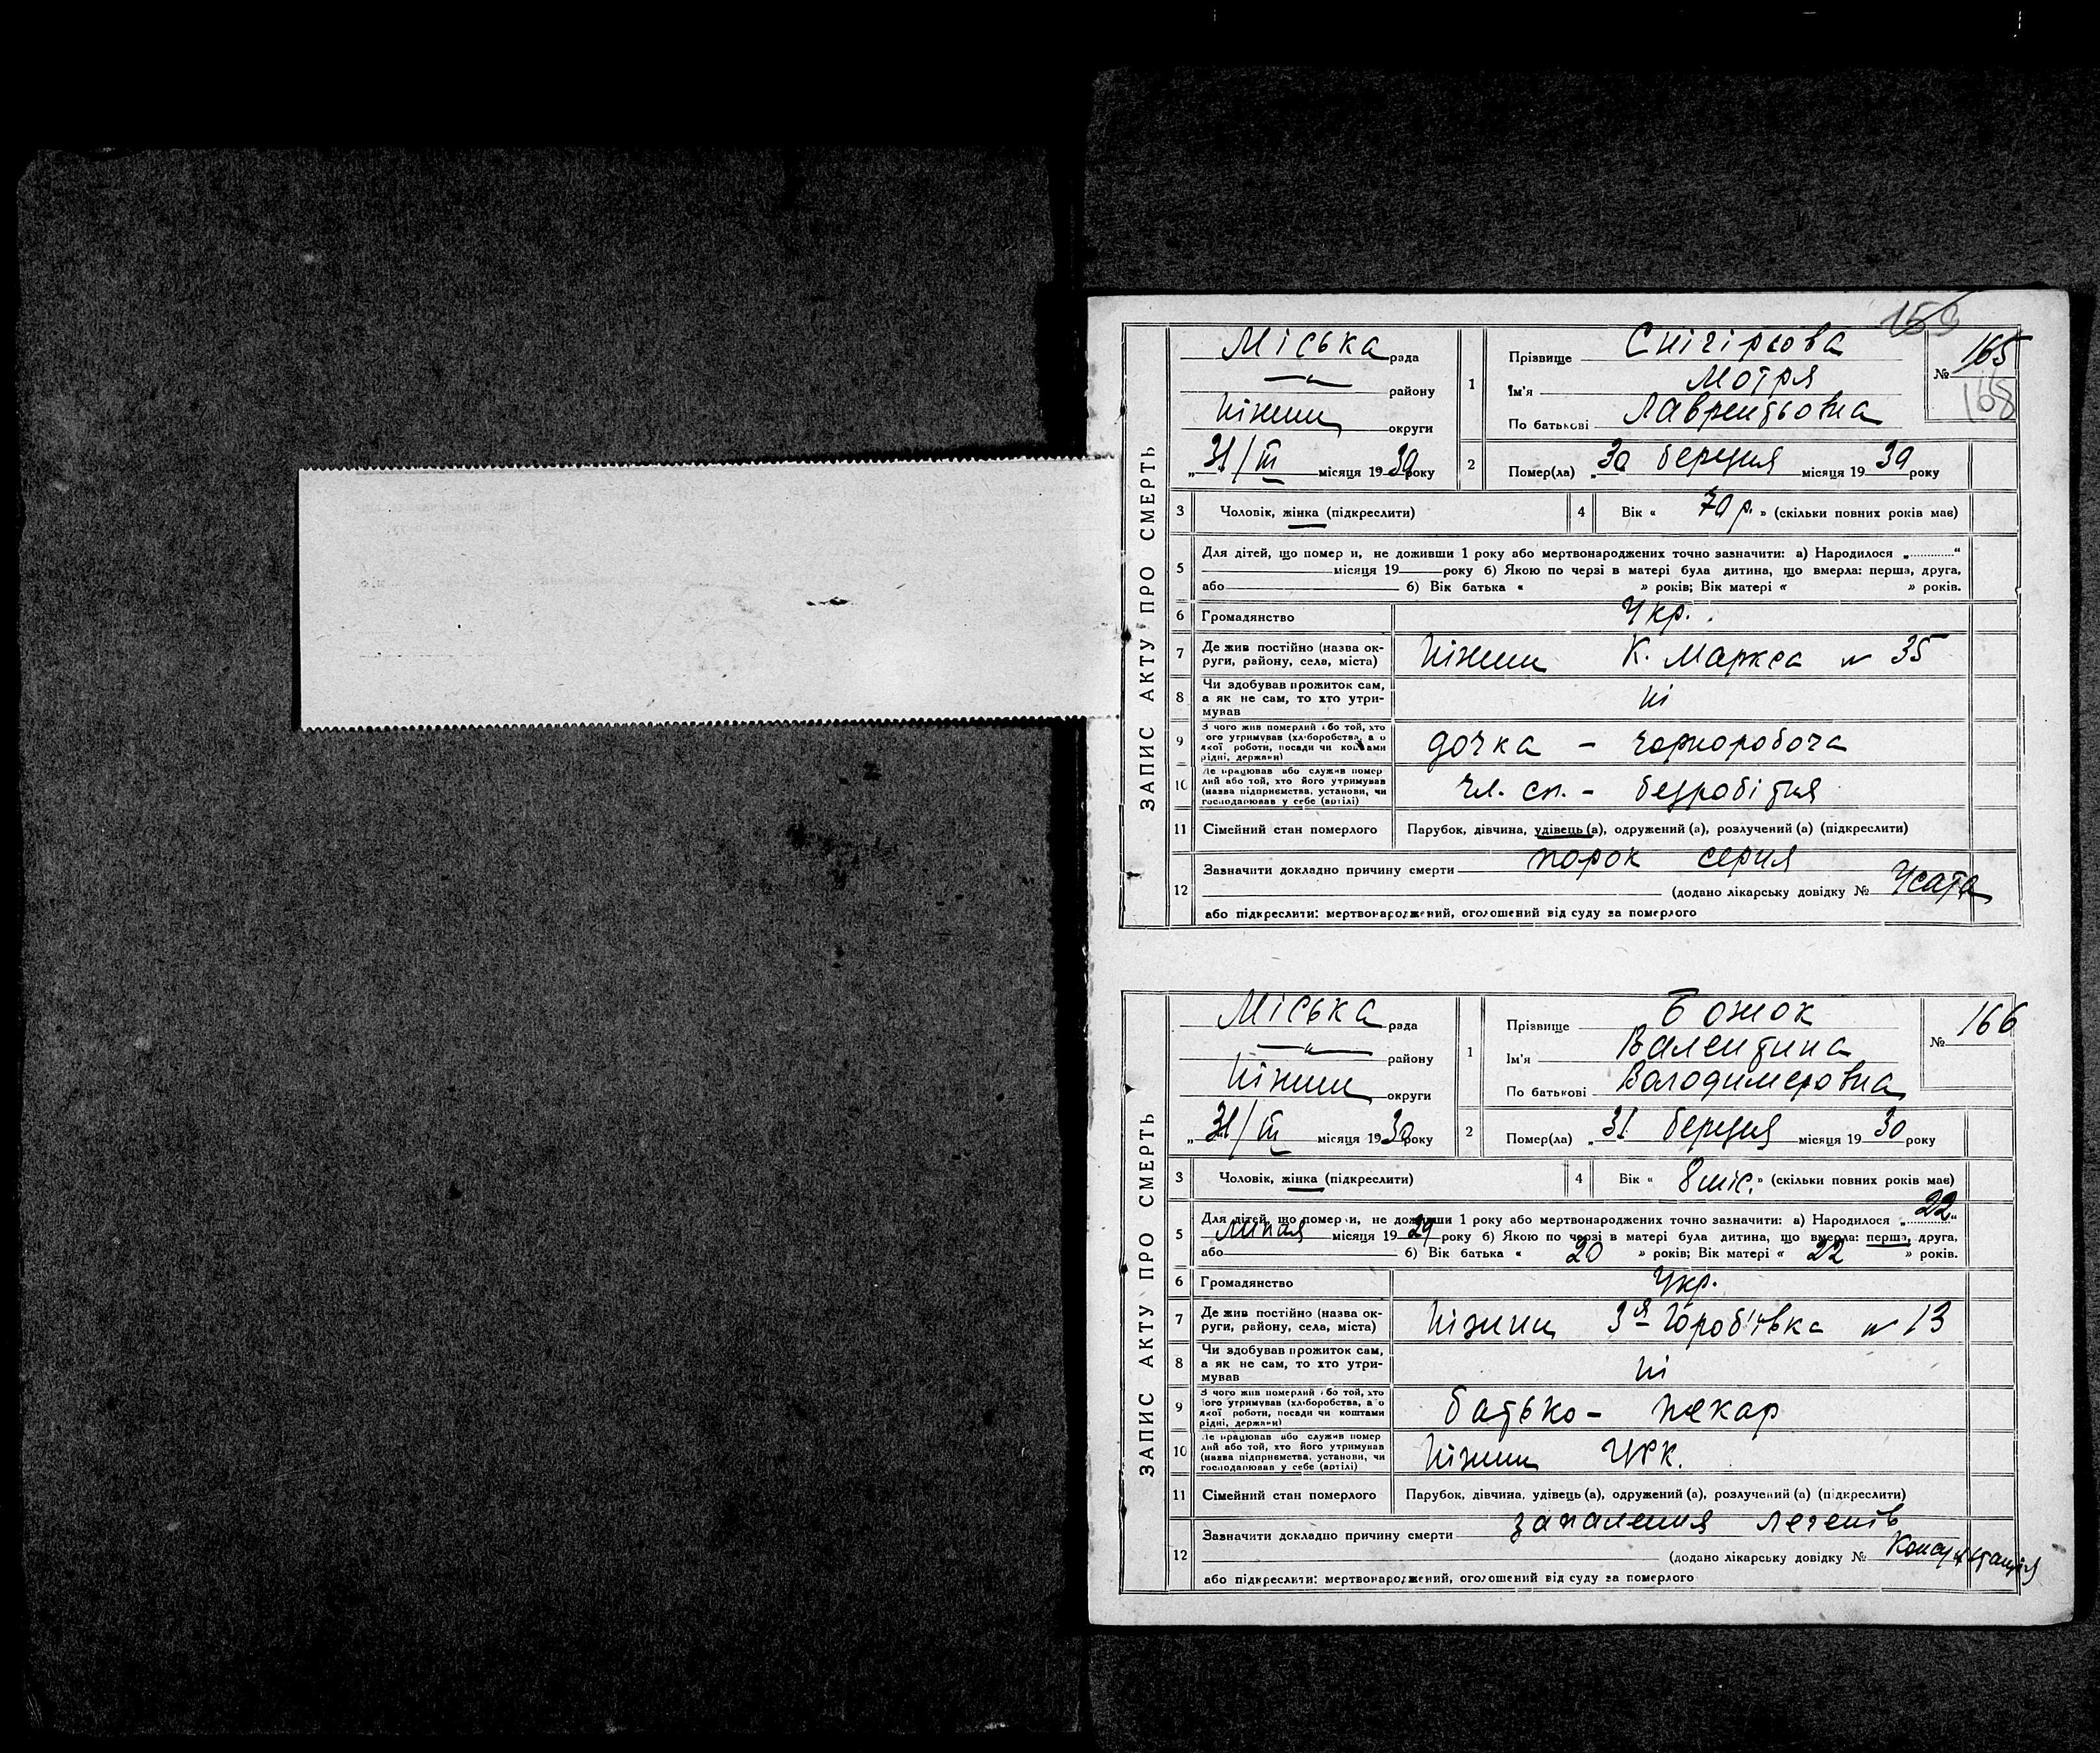 159
ЗАПИС АКТУ ПРО СМЕРТЬ
Міська рада
району
Ніжин округи
„ 31/III місяця 1930 року
1
Прізвище Снігірьова
Ім'я Мотря
По батькові Лаврентьовна
№ 165
168
2 Помер(ла) „ 30 березня місяця 1930 року
3 Чоловік, жінка (підкреслити)
4 Вік « 70 р. » (скільки повних років має)
5 Для дітей, що помер и, не доживши 1 року або мертвонароджених точно зазначити: а) Народилося „............“
місяця 19 року б) Якою по черзі в матері була дитина, що вмерла: перша, друга,
або б) Вік батька « » років; Вік матері « » років.
6 Громадянство Укр.
7 Де жив постійно (назва ок-
руги, району, села, міста) Ніжин К. Маркса № 35
8 Чи здобував прожиток сам,
а як не сам, то хто утри-
мував ні
9 З чого жив померлий або той, хто
ого утримував (хліборобства, а о
якої роботи, посади чи коштами
рідні, держави) дочка - чорноробоча
10 Де працював або служив помер
лий або той, хто його утримував
(назва підприємства, установи, чи
господарював у себе (артілі) чл. сп. - безробітня
11 Сімейний стан померлого Парубок, дівчина, удівець (а), одружений (а), розлучений (а) (підкреслити)
12 Зазначити докладно причину смерти порок серця
(додано лікарську довідку № Усата
або підкреслити: мертвонароджений, оголошений від суду за померлого
ЗАПИС АКТУ ПРО СМЕРТЬ
Міська рада
району
Ніжин округи
„ 31/III місяця 1930 року
1
Прізвище Божок
Ім'я Валентина
По батькові Володимеровна
№ 166
2 Помер(ла) „ 31 березня місяця 1930 року
3 Чоловік, жінка (підкреслити)
4 Вік « 8 міс. » (скільки повних років має)
5 Для дітей, що помер и, не доживши 1 року або мертвонароджених точно зазначити: а) Народилося „ 22 “
липня місяця 1929 року б) Якою по черзі в матері була дитина, що вмерла: перша, друга,
або б) Вік батька « 20 » років; Вік матері « 22 » років.
6 Громадянство Укр.
7 Де жив постійно (назва ок-
руги, району, села, міста) Ніжин 3я Горобієвка № 13
8 Чи здобував прожиток сам,
а як не сам, то хто утри-
мував ні
9 З чого жив померлий або той, хто
його утримував (хліборобства, а о
якої роботи, посади чи коштами
рідні, держави) батько - пекар
10 Де працював або служив помер
лий або той, хто його утримував
(назва підприємства, установи, чи
господарював у себе (артілі) Ніжин ЦРК.
11 Сімейний стан померлого Парубок, дівчина, удівець (а), одружений (а), розлучений (а) (підкреслити)
12 Зазначити докладно причину смерти запалення легенів
(додано лікарську довідку № Консультація
або підкреслити: мертвонароджений, оголошений від суду за померлого